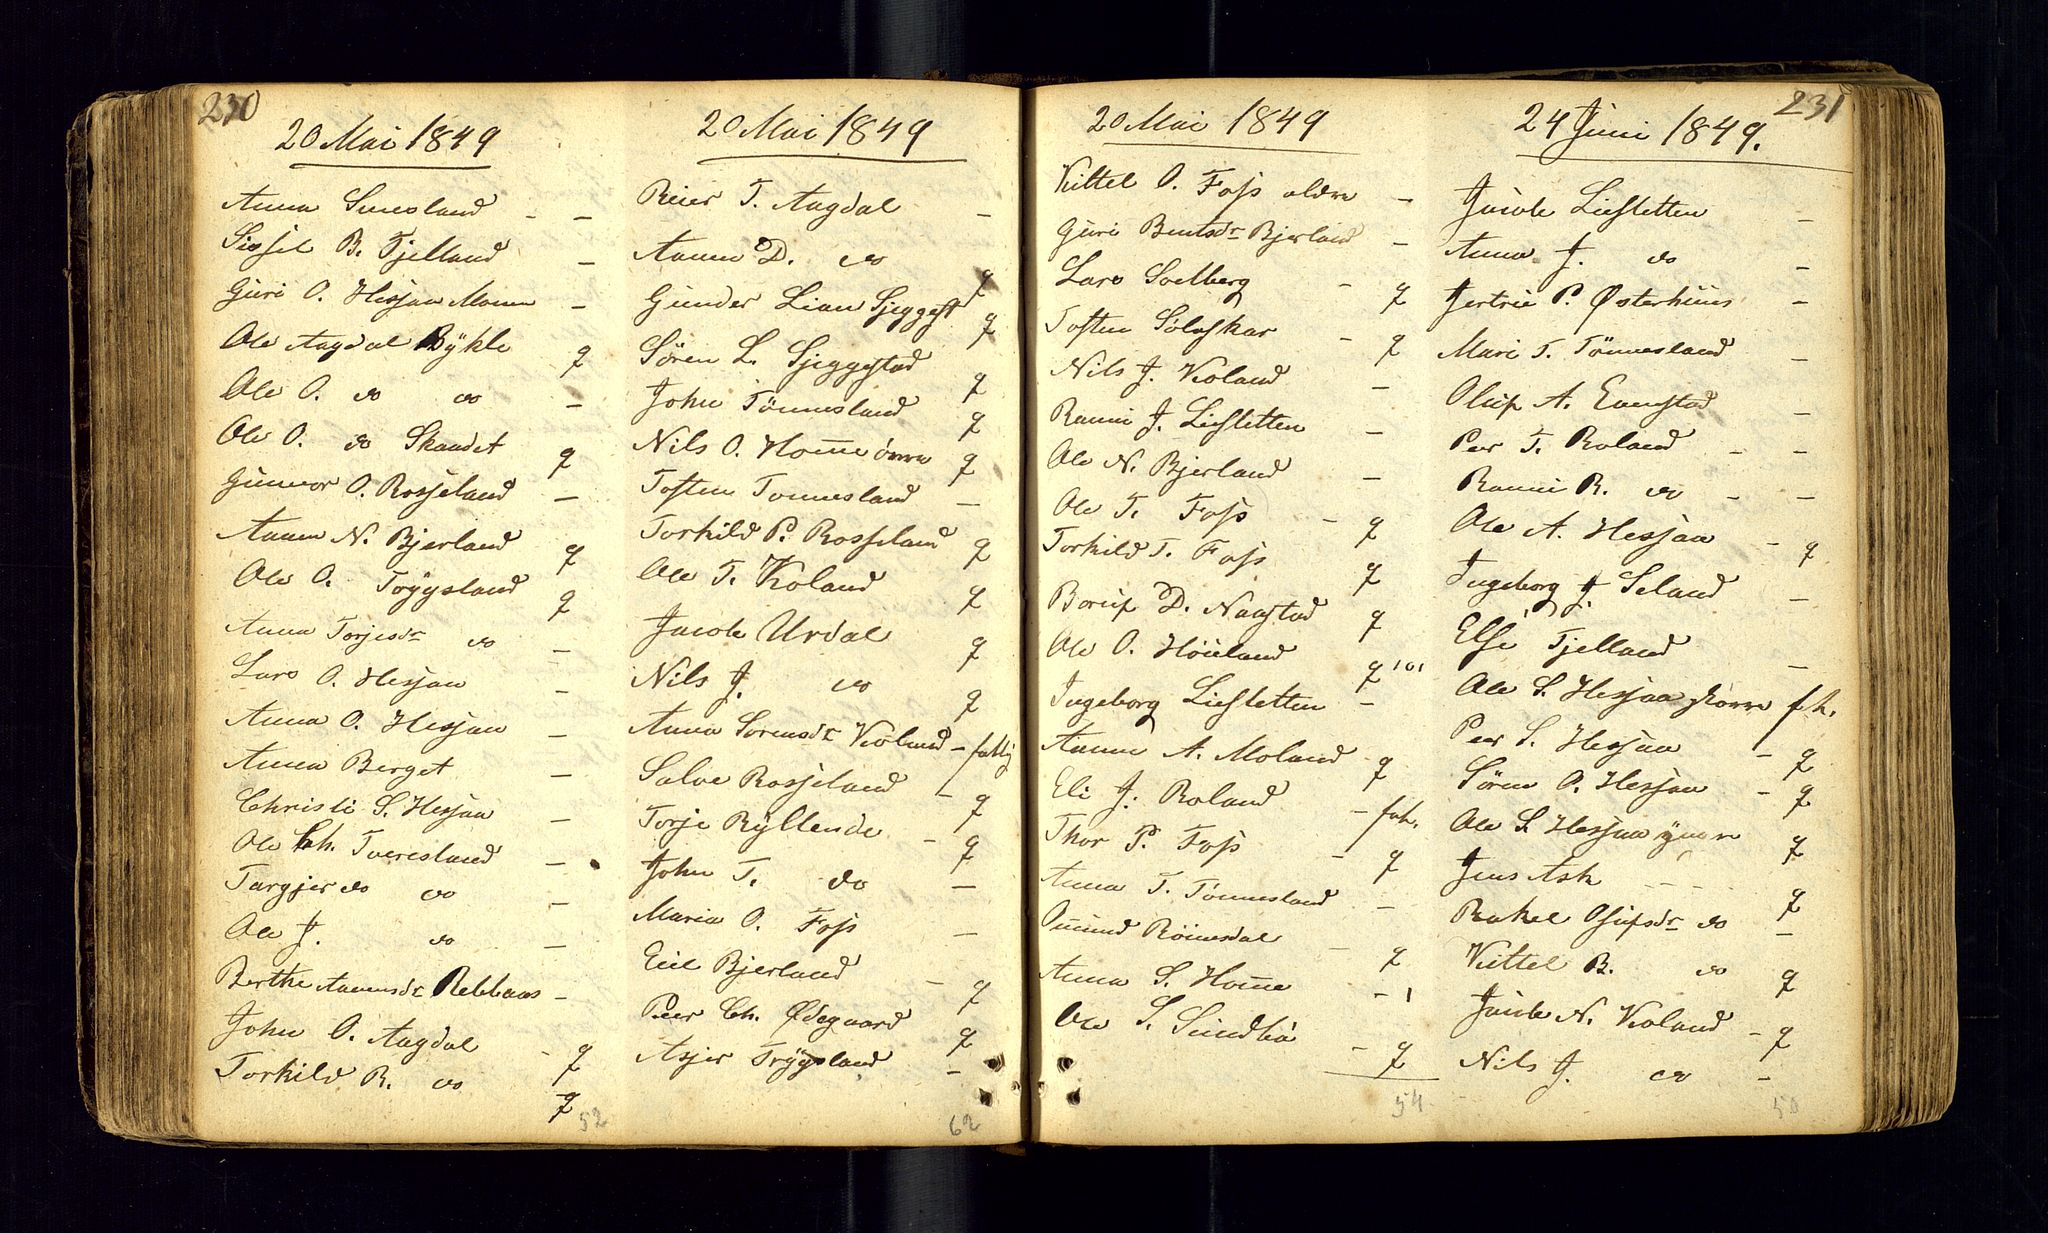 230
20 Mai 1849
Anna Sinesland - -
Sissel B. Fjelland -
Guri O. Hesjaa Moen -
Ole Aagdal Bykle q
Ole O. do do -
Ole O. do Skaadet q
Gunvor O. Rosseland -
Aanen N. Bjerland q
Ole O. Trygsland q
Anna Torjesdr do -
Lars O. Hesjaa -
Anna O. Hesjaa -
Anna Berget -
Christi S. Hesjaa -
Ole Ch. Tveresland -
Targjer do do -
Ole J. do -
Berthe Aanensdr Rebbaas -
John O. Aagdal - q
Torkild R. do q
52
20 Mai 1849
Reier T. Aagdal -
Aanen D. do q
Gunder Lian Sjeggest q
Søren L. Sjeggestad q
John Tönnesland q
Nils O. Home övre q
Tosten Tonnesland -
Torkild P. Rosseland q
Ole T. Koland q
Jacob Urdal q
Nils J. do q
Anna Sorensdr Kolund - fattig
Salve Rosseland - q
Torje Ryllende - q
John T. do -
Maria O. Foss -
Eiel Bjerland - q
Peer Ch. Ødegaard q
Asjer Trygsland -
62
20 Mai 1849
Kittel O. Foss oldre -
Guri Bentsdr Bjerland -
Lars Soelberg - q
Tosten Soloskar - q
Nils J. Koland -
Ranni J. Liestetten -
Ole N. Bjerland -
Ole T. Foss - q
Torkild T. Foss q
Borup D. Naastad q
Ole O. Höieland q 101
Ingeborg Liestetten -
Aanen A. Moland q
Eli J. Roland - fat.
Thor P. Foss - q
Anna T. Tönnesland -
Omund Röinesdal - q
Anna S. Home - 1
Ole S. Sundbö - q
54
231
24 Juni 1849.
Jacob Liestetten -
Anna J. do -
Jertrue P. Østerhuus -
Mari T. Tönnesland -
Oluf A. Evenstad -
Peer T. Roland - -
Ranni R. do - -
Ole A. Hesjaa - q
Ingeborg J Seland -
Else Fjelland -
Ole S. Hesjaa större fat.
Peer S. Hesjaa - q
Sören O. Hesjaa - q
Ole S. Hesjaa yngre q
Jens Ask q
Rakel Osufsdr do -
Kittel B. do q
Jacob N. Koland - q
Nils J. do -
50